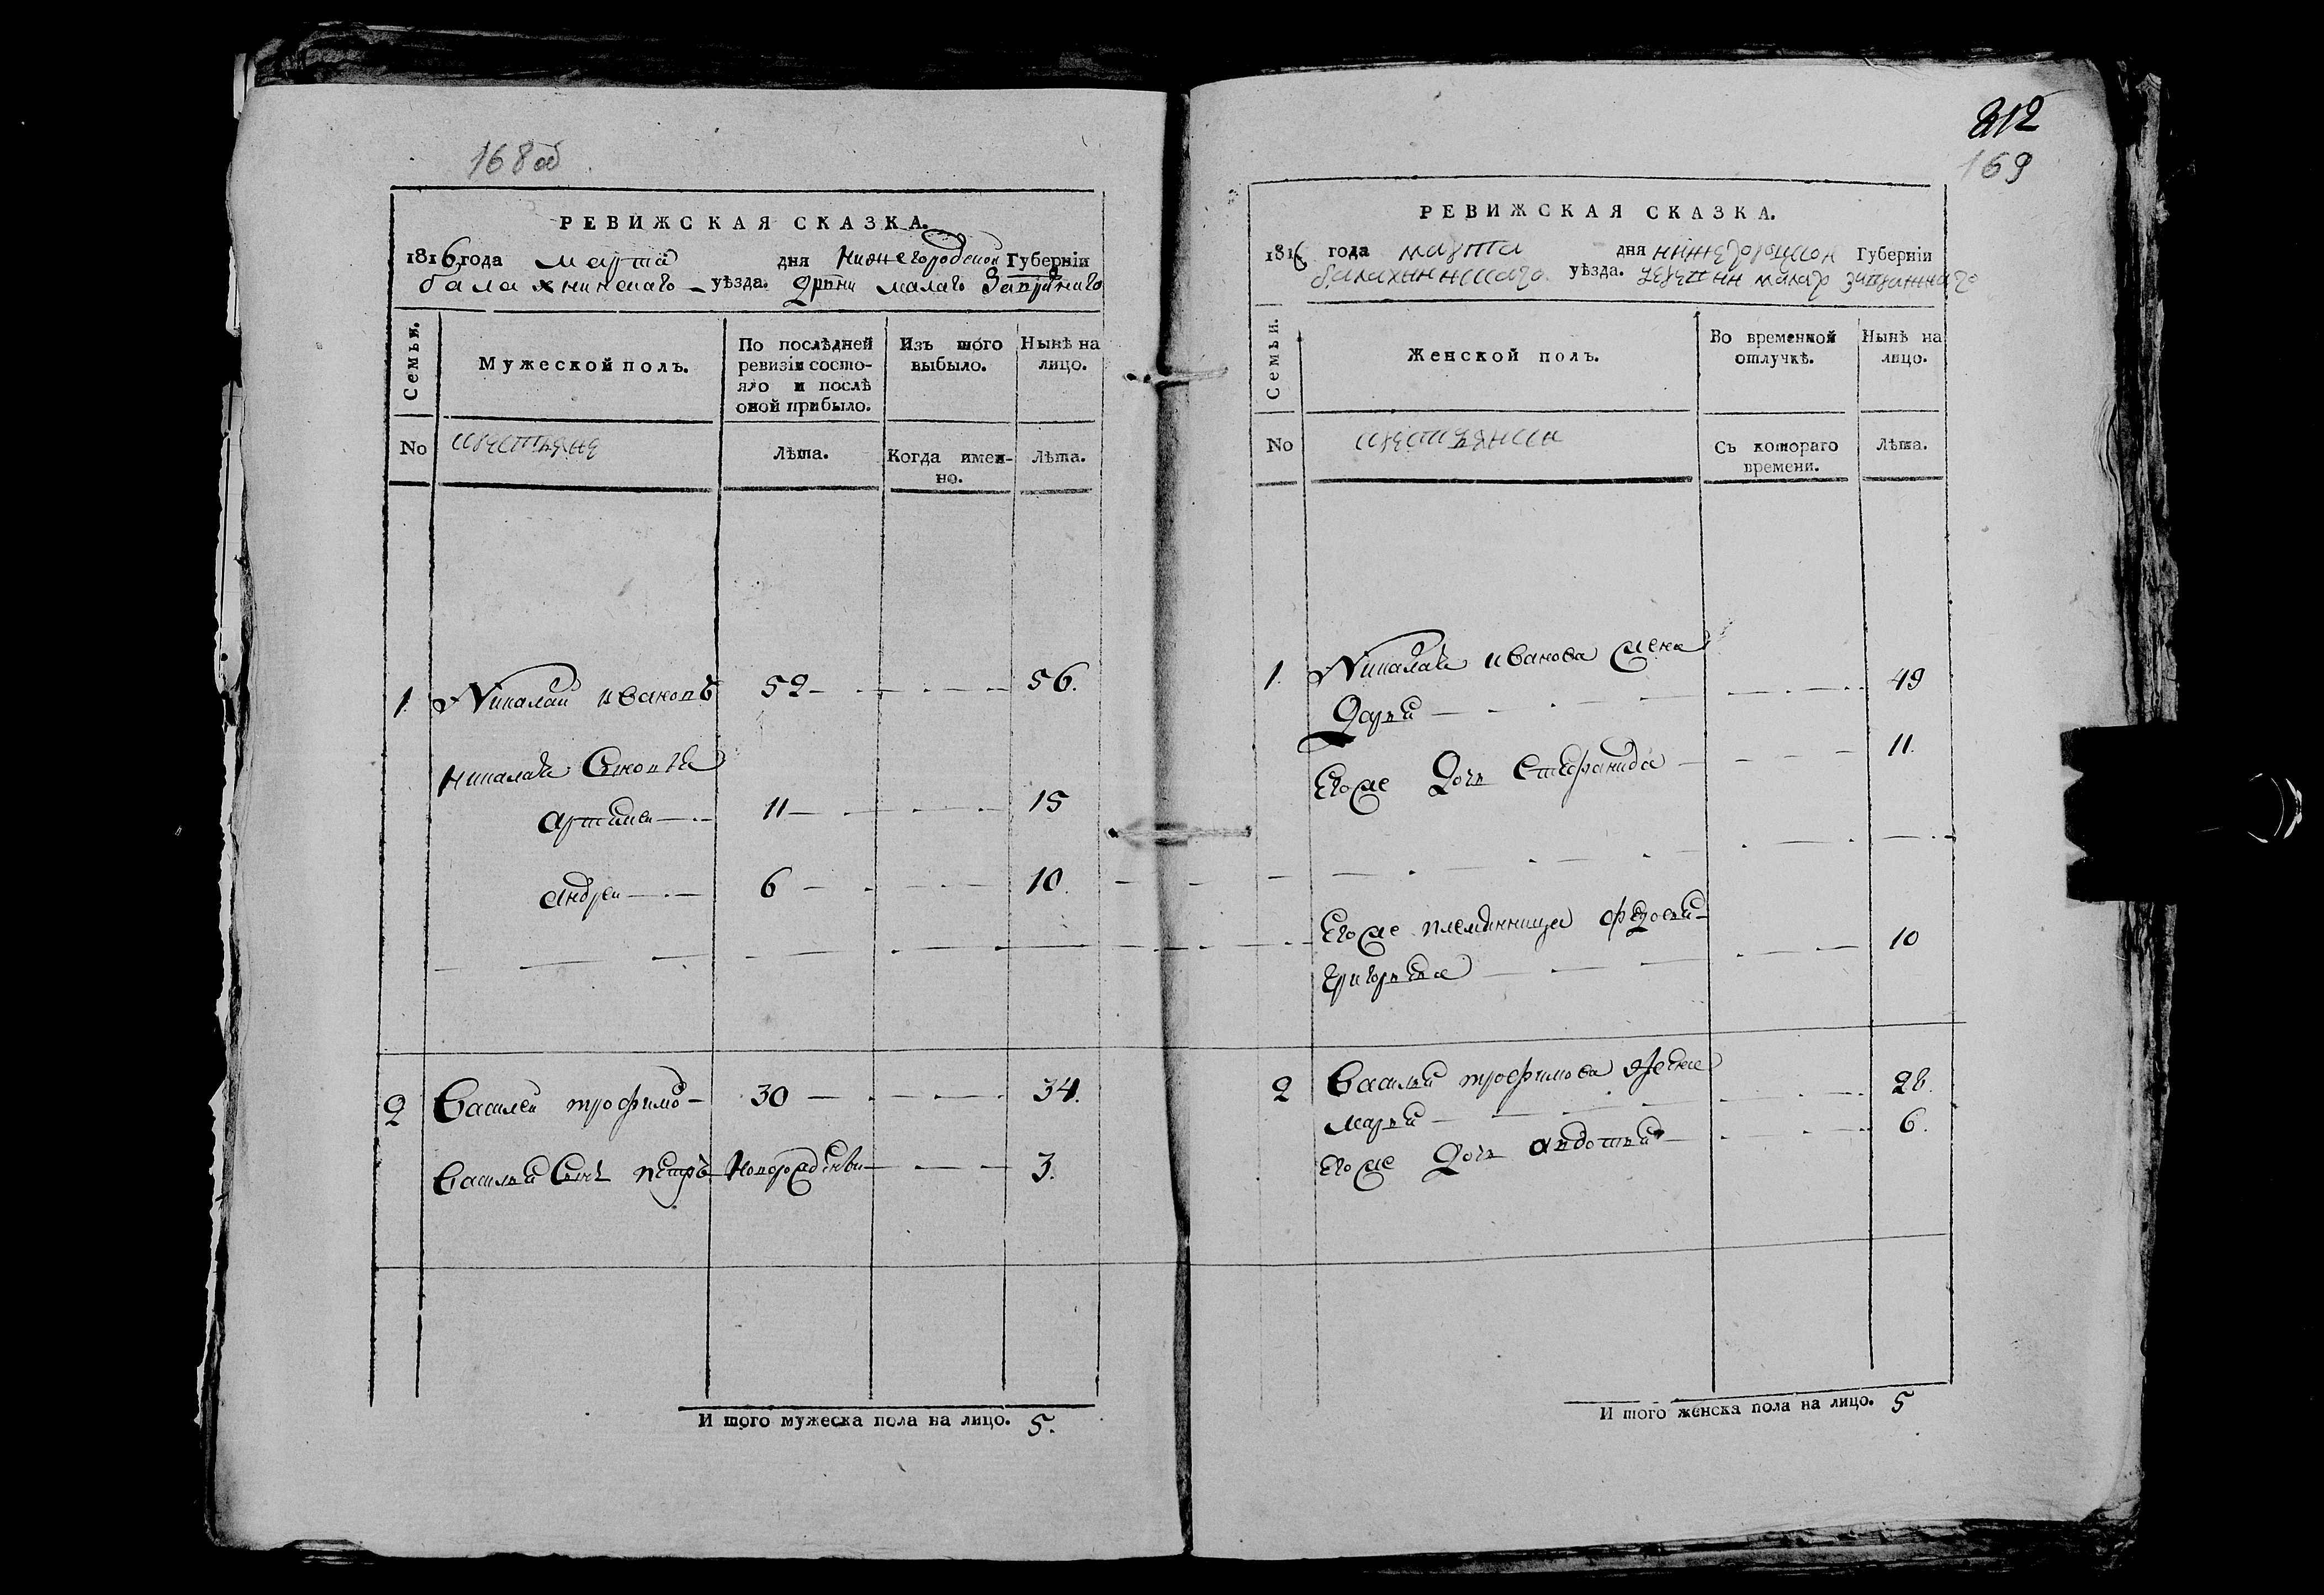 168об
РЕВИЖСКАЯ СКАЗКА.
1816 года марта дня Нижегородской Губерніи
балахнинскаго уѣзда. Дрвни малаго Запрудного
Семьи.
Мужеской полъ.
По послѣдней ревизіи состояло и послѣ оной прибыло.
Изъ того выбыло.
Нынѣ на лицо.
No
крестьяне
Лѣта.
Когда именно.
Лѣта.
1. Николай ивановъ 52 56.
николая Сыновья
артимеи 11 15
андреи 6 10.
2 Василеи трофимо 30 34.
Василья Сынъ петръ Новорожденыи 3.
И того мужеска пола на лицо. 5.
312
169
РЕВИЖСКАЯ СКАЗКА.
1816 года марта дня нижегороцкои Губерніи
балахнинскаго уѣзда. деревни малаго
Семьи.
Женской полъ.
Во временной отлучкѣ.
Нынѣ на лицо.
No
крестьянки
Съ котораго времени.
Лѣта.
1. Николая иванова жена
Дарья 49
Егоже Дочь Стефанида 11.
Егоже племянница федосья
григорьева 10
2 Василья трофимова жена
марья 28.
Егоже Дочь авдотья 6.
И того женска пола на лицо. 5